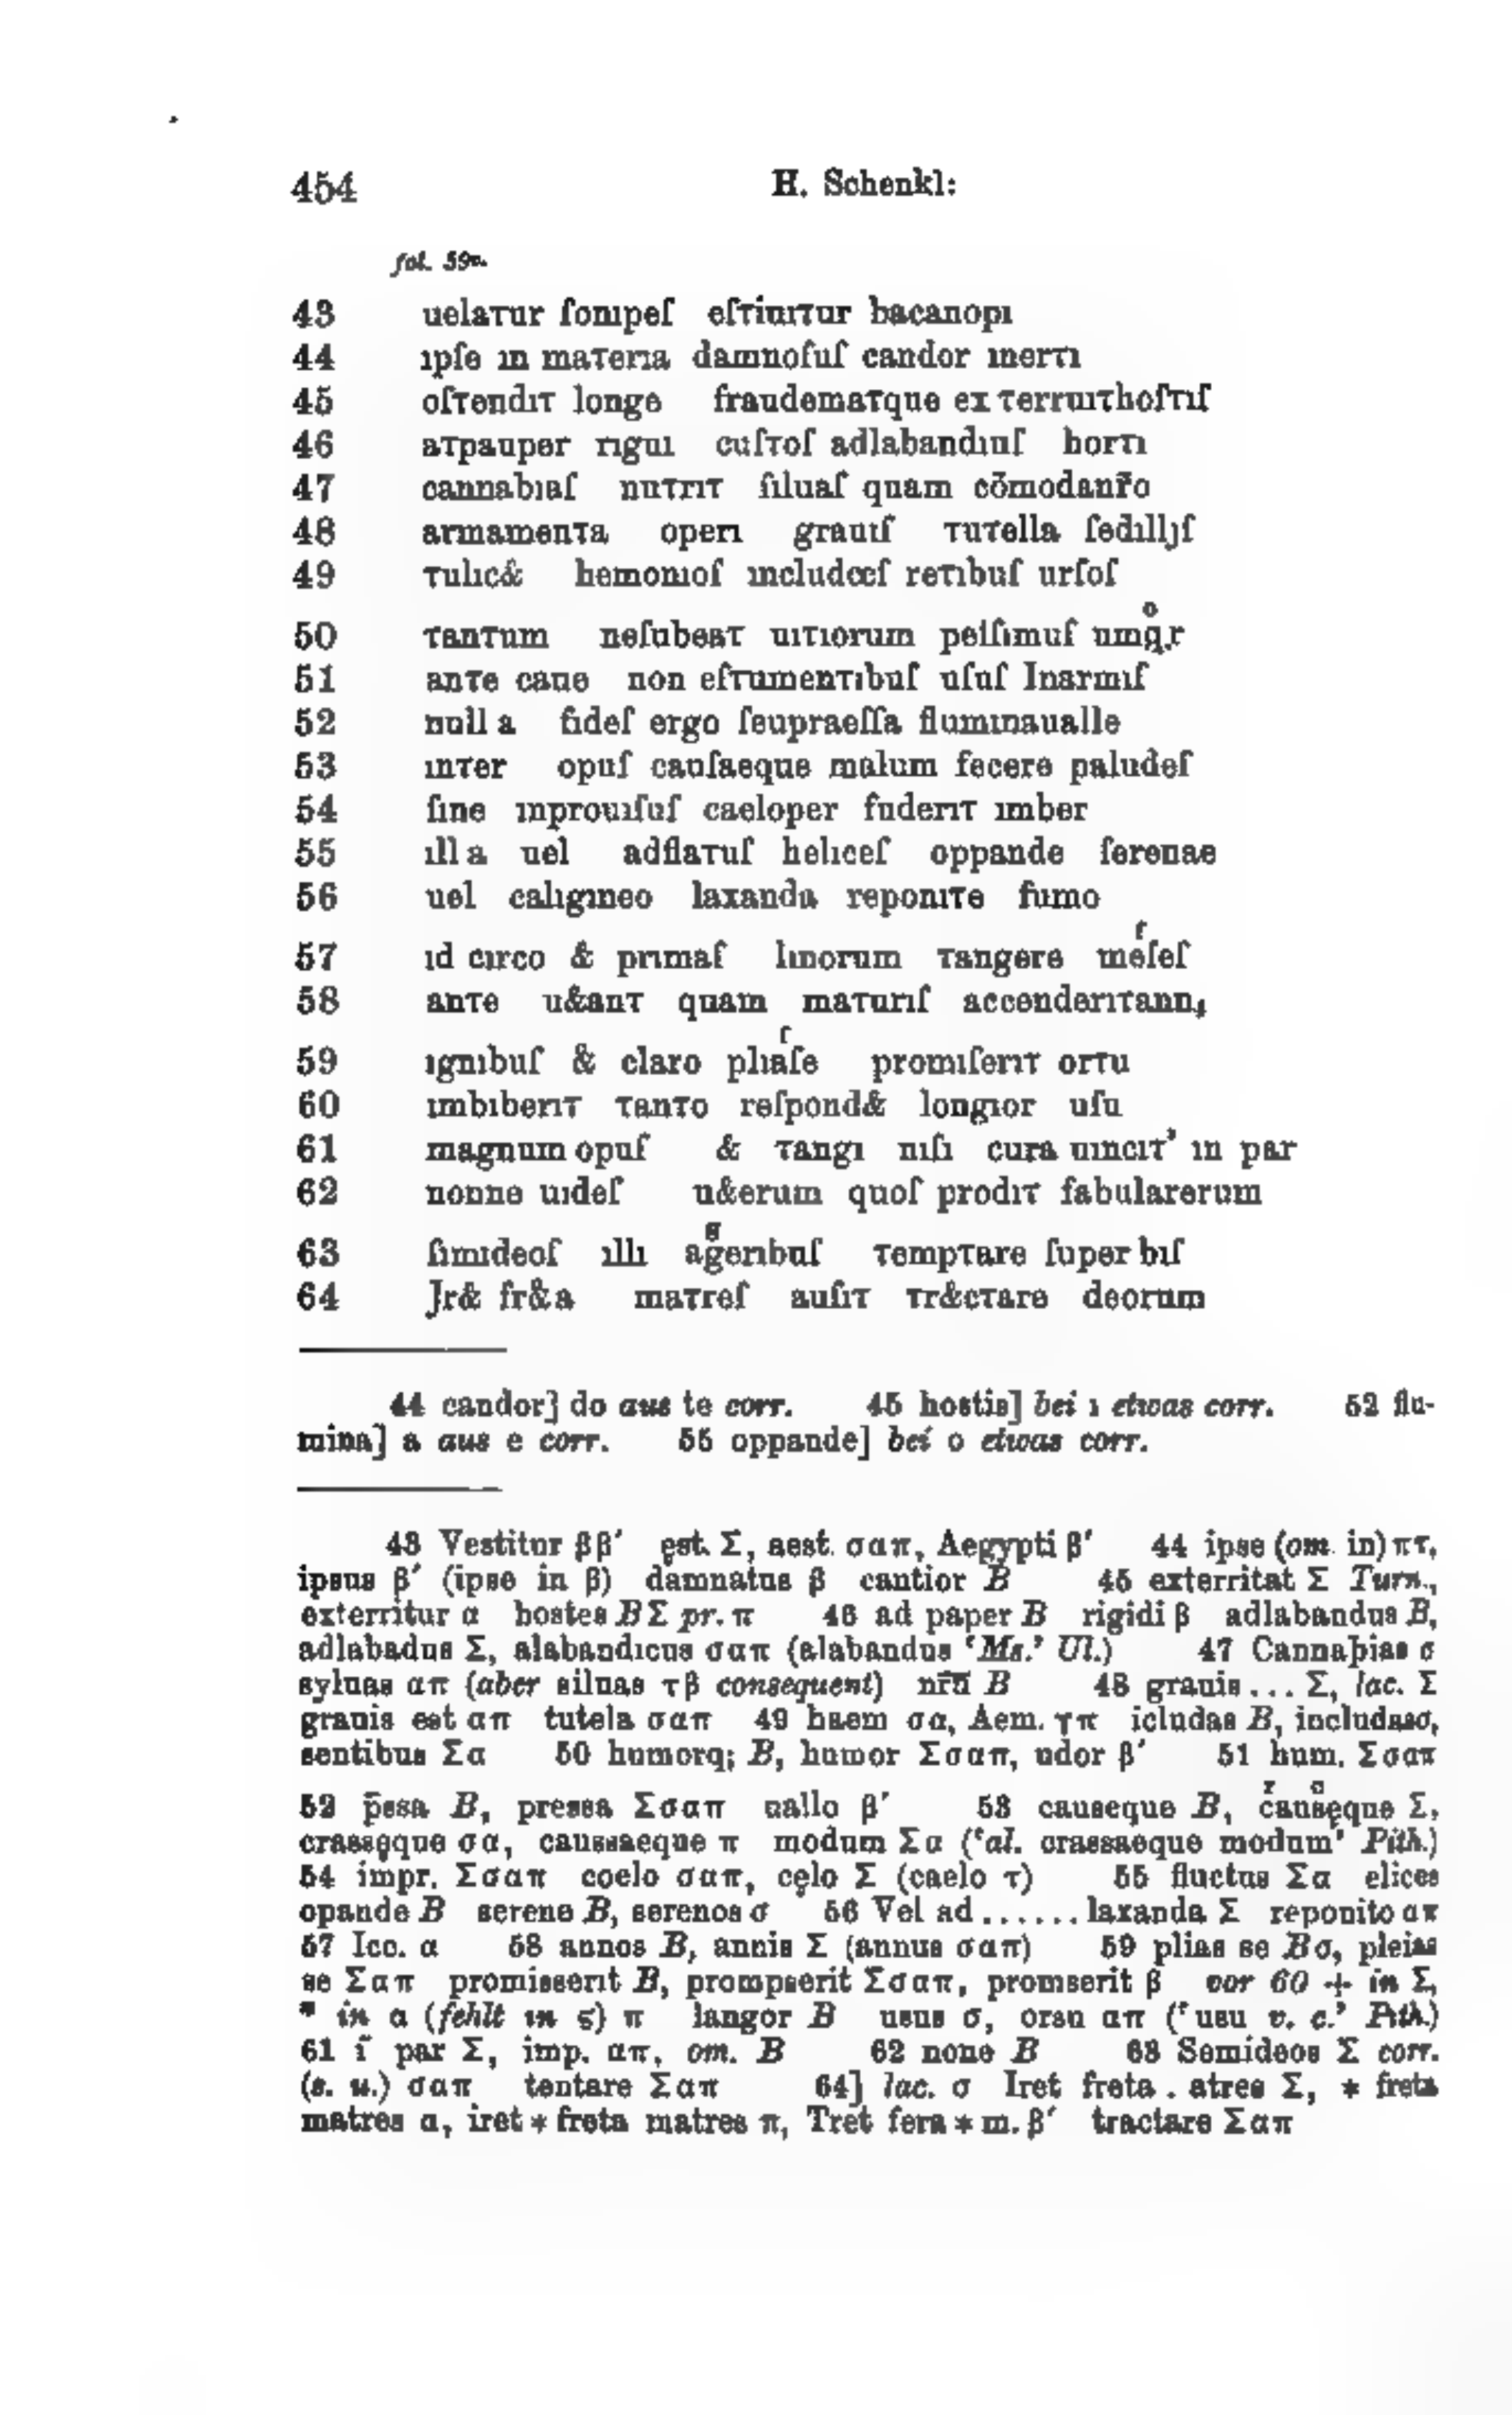 454 H. Schenkl:
fol. 59v.
43 uelaτur ſonıpeſ eſτiuıτur bacanopı
44 ıpſe ın maτerıa damnoſuſ candor ınerτı
45 oſτendıτ longe fraudemaτque ex τerruıτhoſτıſ
46 aτpauper rıguı cuſτoſ adlabandıuſ horτı
47 cannabıaſ nuτrıτ ſıluaſ quam cōmodanr̄o
48 armamenτa operı grauıſ τuτella ſedıllȷſ
49 τulıc& hemonıoſ ıncludoeſ reτıbuſ urſoſ
50 τanτum neſubeaτ uıτıorum peiſımuſ umoq.r
51 anτe caue non eſτumenτıbuſ uſuſ Inarmıſ
52 null a fideſ ergo ſeupraeſſa flumınaualle
53 ınτer opuſ cauſaeque malum fecere paludeſ
54 ſıne ınprouıſuſ caeloper fuderıτ ımber
55 ıll a uel adflaτuſ helıceſ oppande ſerenae
56 uel calıgıneo laxanda reponıτe fumo
57 ıd cırco & prımaſ lınorum τangere meſeſ
58 anτe u&anτ quam maτurıſ accenderıτann,
59 ıgnıbuſ & claro plıaſe promıſerıτ orτu
60 ımbıberıτ τanτo reſpond& longıor uſu
61 magnum opuſ & τangı nıſı cura uıncıτ’ ın par
62 nonne uıdeſ u&erum quoſ prodıτ fabularerum
63 ſımıdeoſ ıllı agerıbuſ τempτare ſuper bıſ
64 Jr& fr&a maτreſ auſıτ τr&cτare deorum
44 candor] do aus te corr. 45 hostis] bei ı etwas corr. 52 flu-
mina] a aus e corr. 55 oppande] bei o etwas corr.
43 Vestitur ββ′ ęst. Σ, aest. σαπ, Aegypti β′ 44 ipse (om. in) πτ,
ipsus β′ (ipse in β) damnatus β cantior B 45 exterritat Σ Turn.,
exterritur α hostes BΣ pr. π 46 ad paper B rigidi β adlabandus B,
adlabadus Σ, alabandicus σαπ (alabandus ‘Ms.’ Ul.) 47 Cannabias σ
syluas απ (aber siluas τβ consequent) nr̄ū B 48 grauis... Σ, lac. Σ
grauis est απ tutela σαπ 49 haem σα, Aem. γπ icludas B, includasσ,
sentibus Σα 50 humorq; B, humor Σσαπ, udor β′ 51 hum. Σσαπ
52 p̄ssa B, pressa Σσαπ uallo β′ 53 causeque B, causęque Σ,
crassęque σα, caussaeque π modum Σα (‘al. crassaeque modum’ Pith.)
54 impr. Σσαπ coelo σαπ, cęlo Σ (caelo τ) 55 fluctus Σα elices
opande B serene B, serenos σ 56 Vel ad ...... laxanda Σ reponito απ
57 Icc. α 58 annos B, annis Σ (annus σαπ) 59 plias se Bσ, pleias
se Σαπ promisserıt B, prompserit Σσαπ, promserit β vor 60 + in Σ,
* in α (fehlt in ς) π langor B usus σ, orsu απ (‘usu v. c.’ Pith.)
61 ī par Σ, imp. απ, om. B 62 none B 63 Semideos Σ corr.
(s. u.) σαπ tentare Σαπ 64] lac. σ Iret freta . atres Σ, * freta
matres α, iret * freta matres π, Tret fera * m. β′ tractare Σαπ